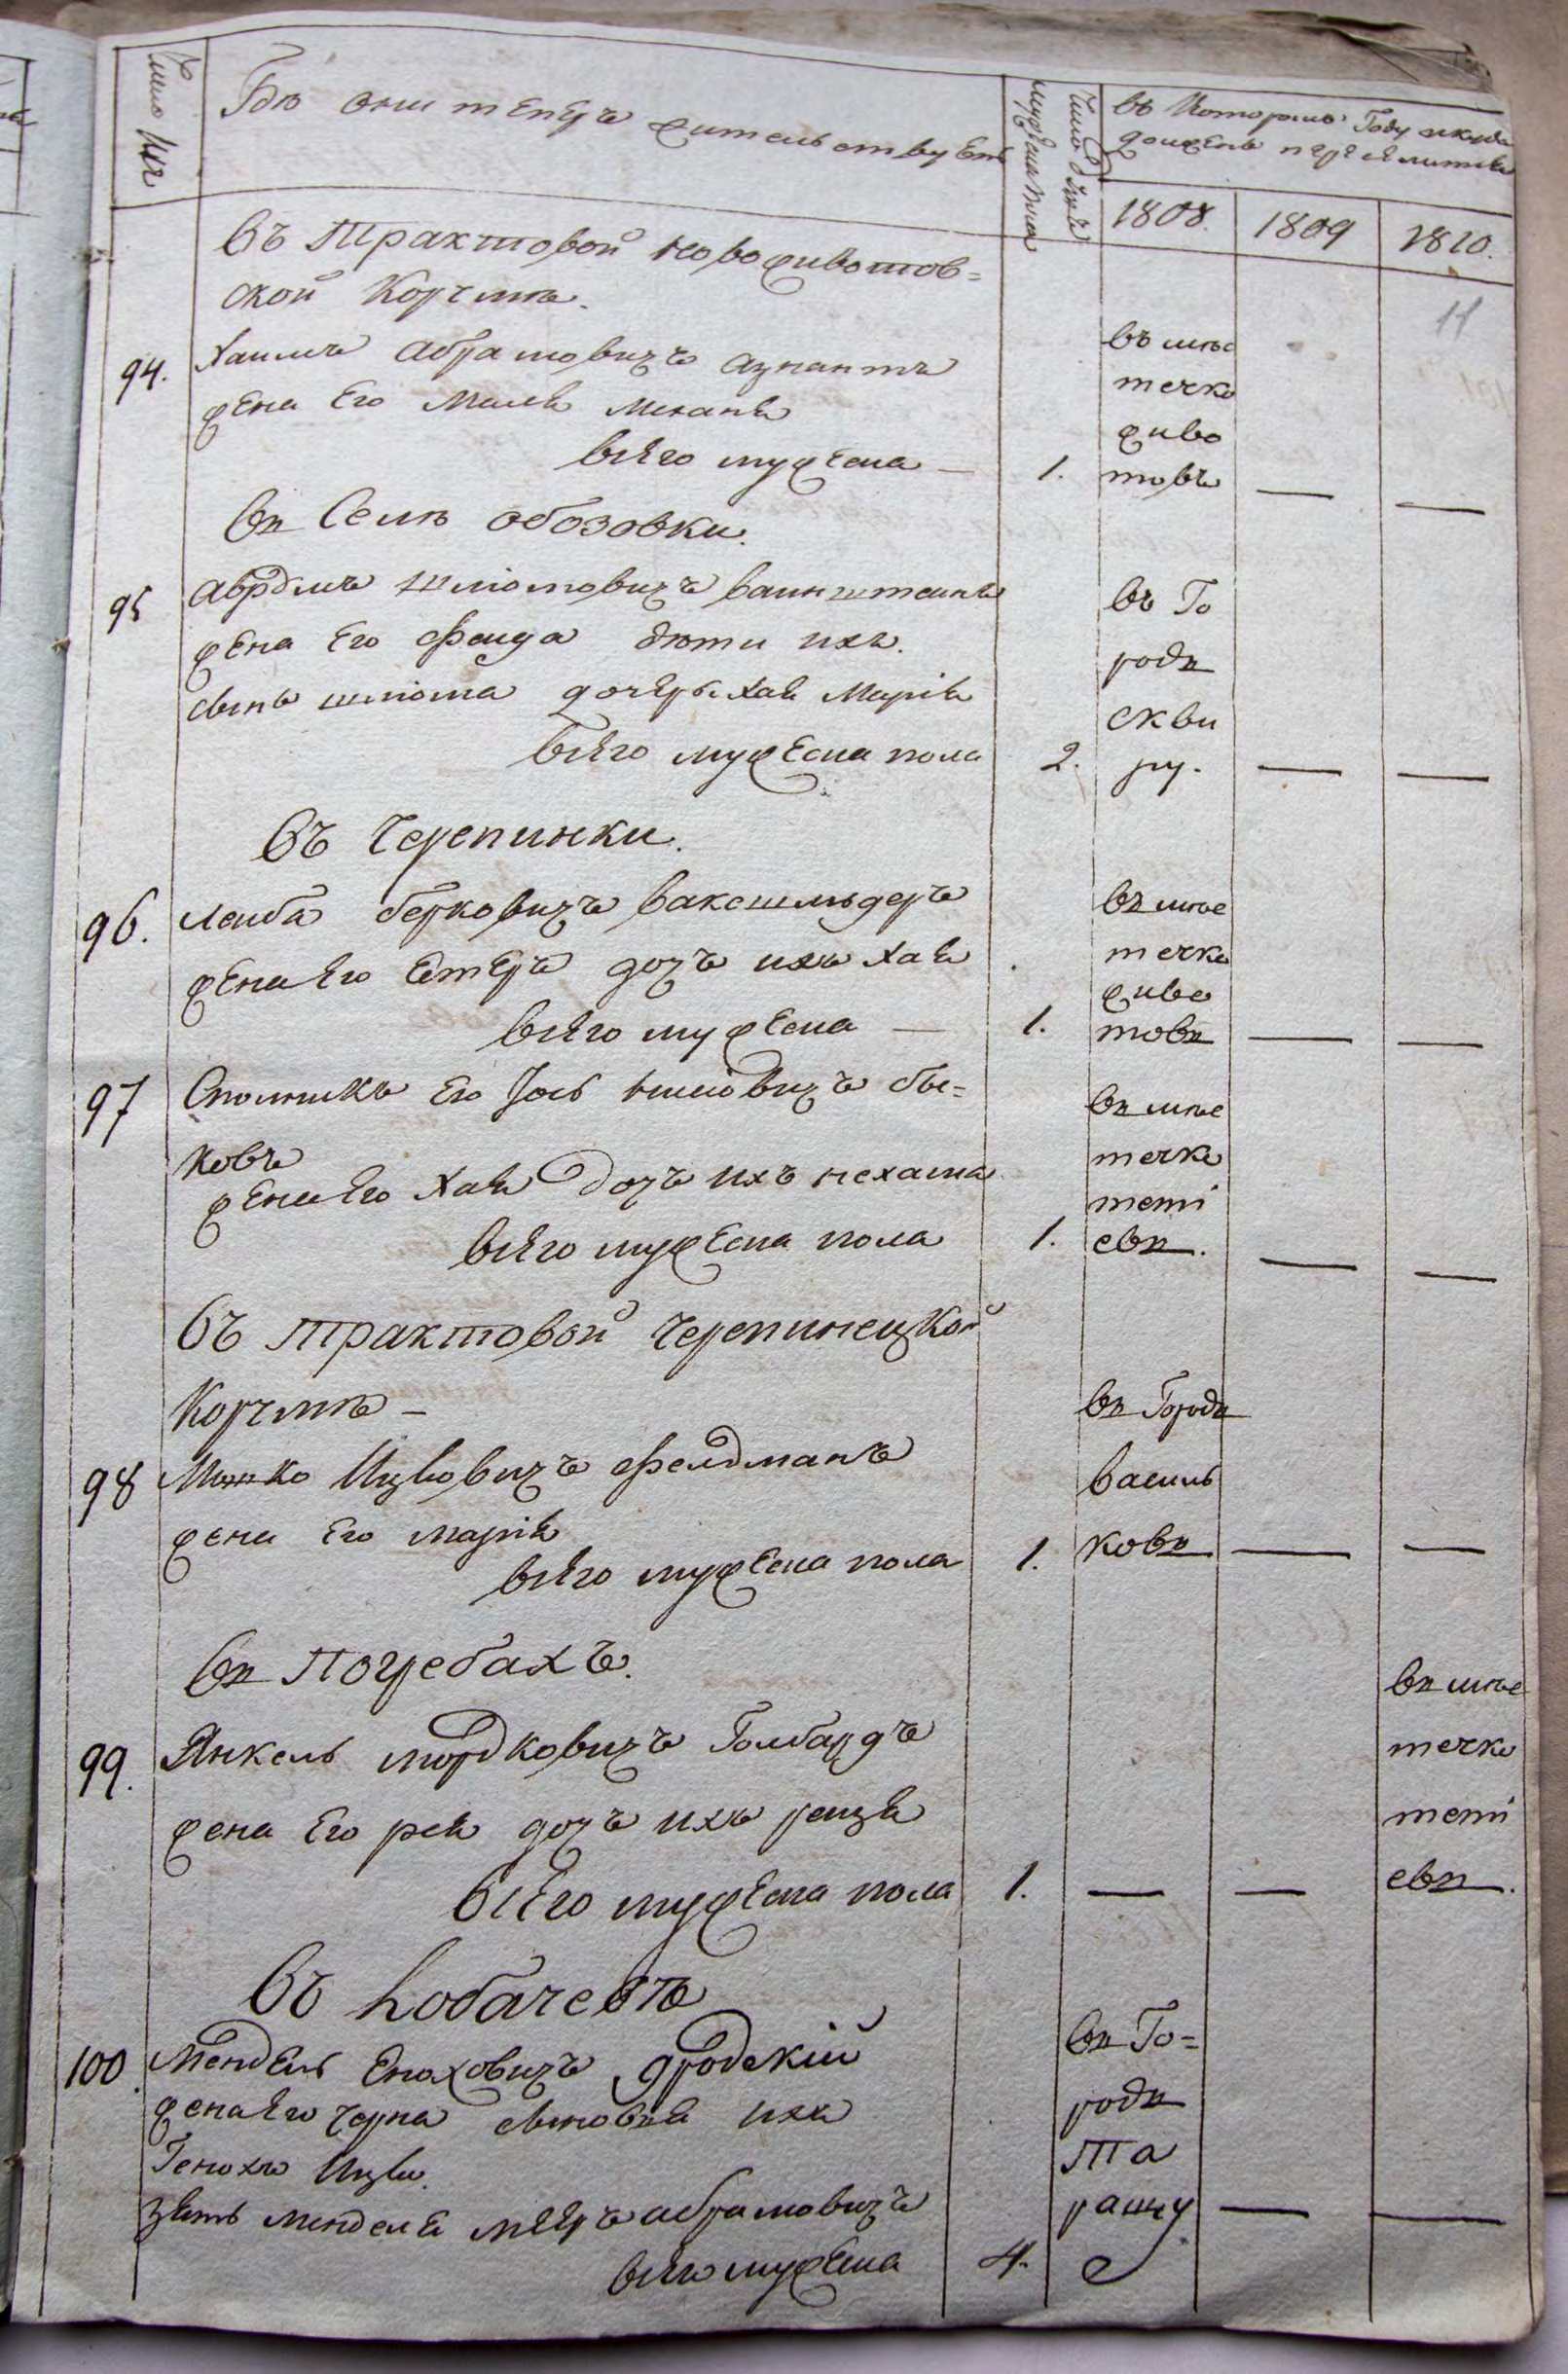 Число
Где они теперь жительствуютъ
Число душъ
мужеска пола
въ которомъ Году и куда
долженъ переселитися
1808. 1809 1810.
11
въ Трактовой новоживотов=
ской Корчмѣ.
94. Хаимъ Абрамовичъ
жена Его
всего мужеска — 1.
въ мѣс
течко
живо
товъ — —
въ Селѣ обозовки.
95 Аврамъ шліомовичъ ваинштеинъ
жена Его Феида дѣти ихъ.
сынъ шліома дочеръ: хая Марія
всего мужеска пола 2.
въ Го
родъ
скви
ру. — —
въ Черепинки.
96. Леиба берковичъ ваксшльдеръ
жена Его Естеръ дочъ ихъ хая
всего мужеска — 1.
въ мѣс
течко
живо
товъ — —
97 Спольникъ Его Іось бы=
ковъ
жена Его Хая дочъ ихъ нехама
всего мужеска пола 1.
въ мѣс
течко
теті
евъ. — —
въ трактовой черепинецкой
Корчмѣ —
98 Ицковичъ Фелдманъ
жена Его марія
всего мужеска пола 1.
въ Городъ
василь
ковъ — —
въ Погребахъ.
99. Янкель мордковичъ Голбардъ
жена Его рея дочъ ихъ реизя
всего мужеска пола 1. — —
въ мѣс
течко
теті
евъ.
въ
100. Мендель Еноховичъ дродскій
жена Его черна сыновья ихъ
Генохъ Ицко.
зять менделя меяръ абрамовичъ
всего мужеска 4.
въ Го=
родъ
Та
ращу — —